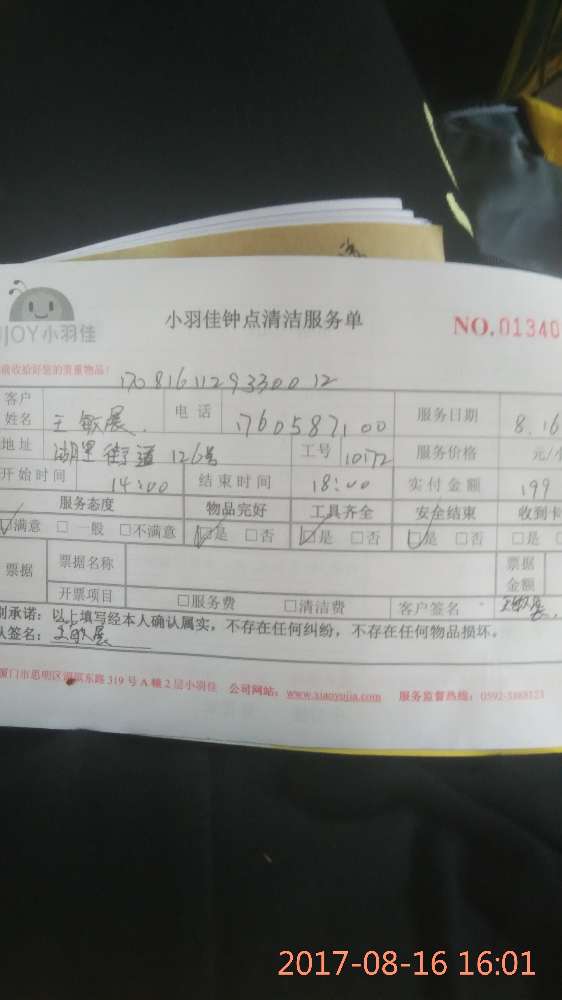 JOY小羽佳
小羽佳钟点清洁服务单
NO.01340
1708161129330012
客户姓名 王敏展 电话 1760587100 服务日期 8.16
地址 湖里街道126号 工号 10172 服务价格 元/
开始时间 14:00 结束时间 18:00 实付金额 199
服务态度 物品完好 工具齐全 安全结束 收到卡
满意 □一般 □不满意 □是 □否 □是 □否 □是 □否 □是
票据 票据名称 票据金额
开票项目 □服务费 □清洁费 客户签名 王敏展
承诺：以上填写经本人确认属实，不存在任何纠纷，不存在任何物品损坏。
签名：王敏展
厦门市思明区湖滨东路319号A幢2层小羽佳 公司网站：www.xiaoyujia.com 服务监督热线：
2017-08-16 16:01